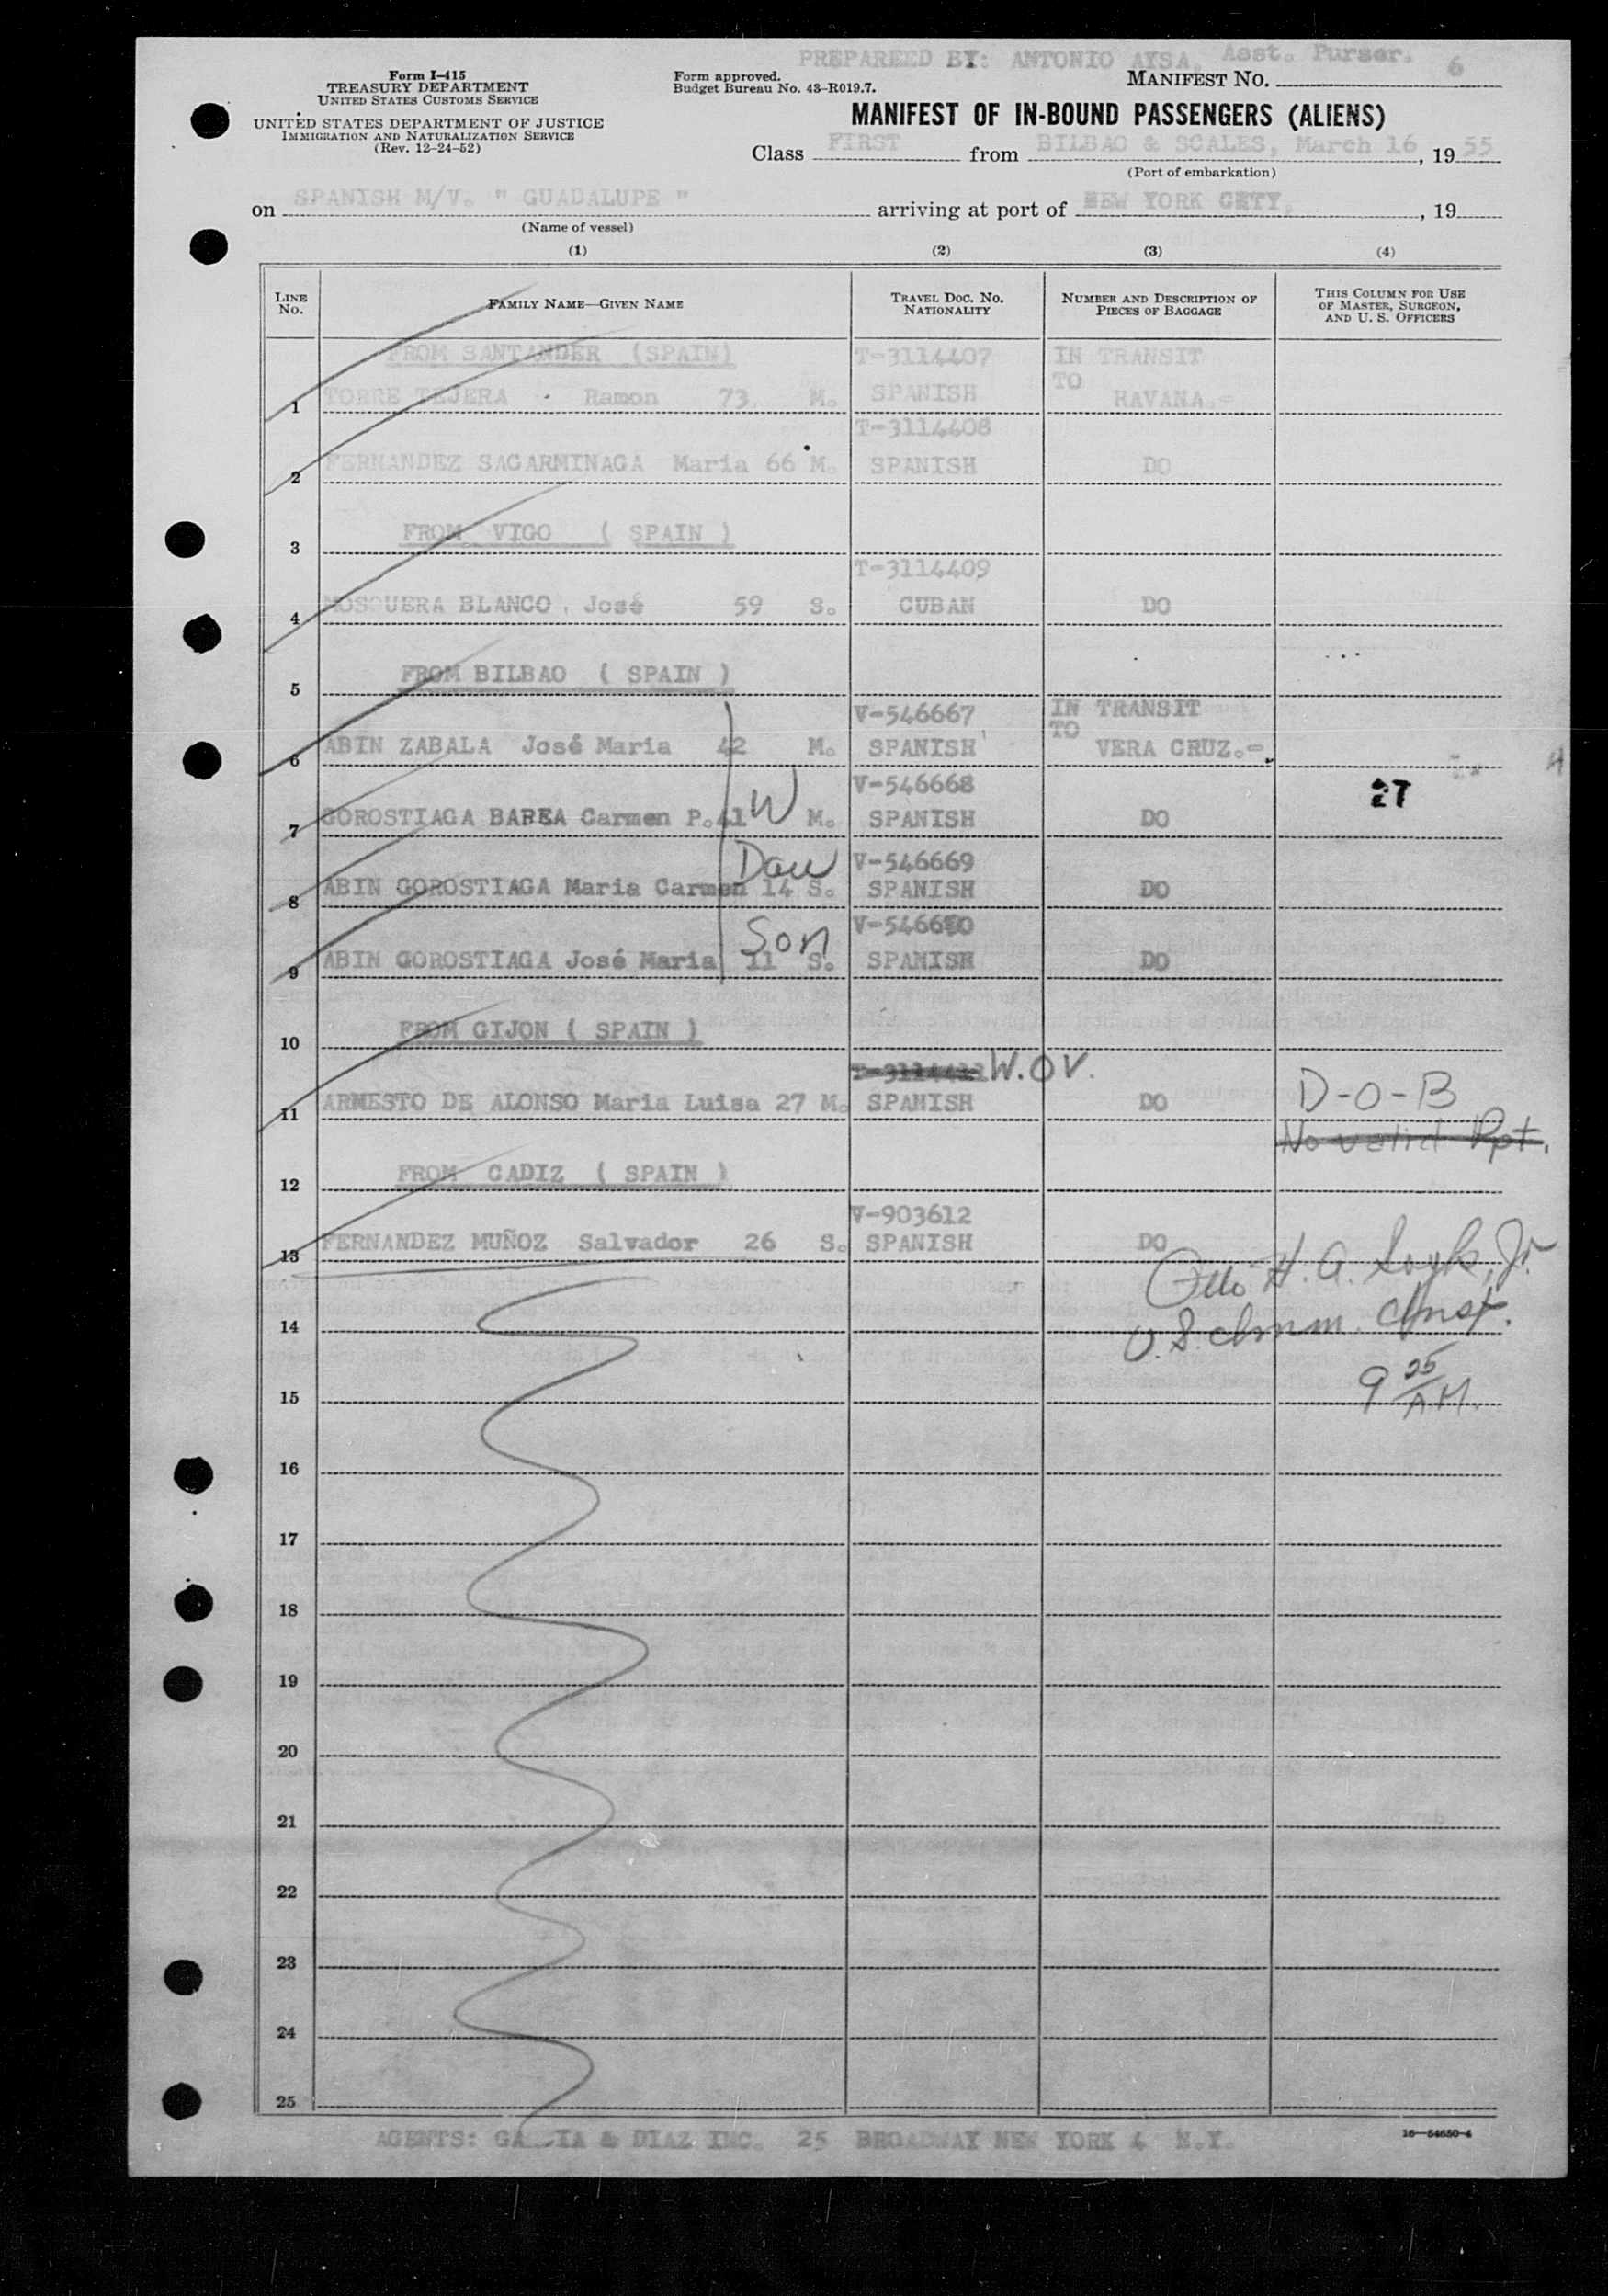 PREPAREED BY: ANTONIO AYSA, Asst. Purser. 6
Form I-415
TREASURY DEPARTMENT
UNITED STATES CUSTOMS SERVICE
UNITED STATES DEPARTMENT OF JUSTICE
IMMIGRATION AND NATURALIZATION SERVICE
(Rev. 12-24-52)
Form approved.
Budget Bureau No. 43-R019.7.
MANIFEST NO.
MANIFEST OF IN-BOUND PASSENGERS (ALIENS)
Class FIRST from BILBAO & SCALES, March 16, 19 55
(Port of embarkation)
on SPANISH M/V. " GUADALUPE " arriving at port of NEW YORK CETY, , 19
(Name of vessel)
(1) (2) (3) (4)
LINE No. FAMILY NAME—GIVEN NAME TRAVEL DOC. NO. NATIONALITY NUMBER AND DESCRIPTION OF PIECES OF BAGGAGE THIS COLUMN FOR USE OF MASTER, SURGEON, AND U. S. OFFICERS
FROM SANTANDER (SPAIN) T-3114407 IN TRANSIT TO
1 TORRE TEJERA Ramon 73 M. SPANISH HAVANA.-
T-3114408
2 FERNANDEZ SAGARMINAGA Maria 66 M. SPANISH DO
3 FROM VIGO ( SPAIN )
T-3114409
4 MOSQUERA BLANCO, José 59 S. CUBAN DO
5 FROM BILBAO ( SPAIN )
V-546667 IN TRANSIT TO
6 ABIN ZABALA José Maria 42 M. SPANISH VERA CRUZ.-
V-546668 27
7 GOROSTIAGA BAREA Carmen P. 41 W M. SPANISH DO
Dau V-546669
8 ABIN GOROSTIAGA Maria Carmen 14 S. SPANISH DO
Son
9 ABIN GOROSTIAGA José Maria 11 S. SPANISH DO
10 FROM GIJON ( SPAIN )
W.O.V.
11 ARMESTO DE ALONSO Maria Luisa 27 M. SPANISH DO D-O-B
No valid Ppt.
12 FROM CADIZ ( SPAIN )
V-903612
13 FERNANDEZ MUÑOZ Salvador 26 S. SPANISH DO
H. A. Jr.
14 U.S. Imm. Insp.
9 25 AM.
15
16
17
18
19
20
21
22
23
24
25
AGENTS: GARCIA & DIAZ INC. 25 BROADWAY NEW YORK 4 N.Y.
16—54650-4